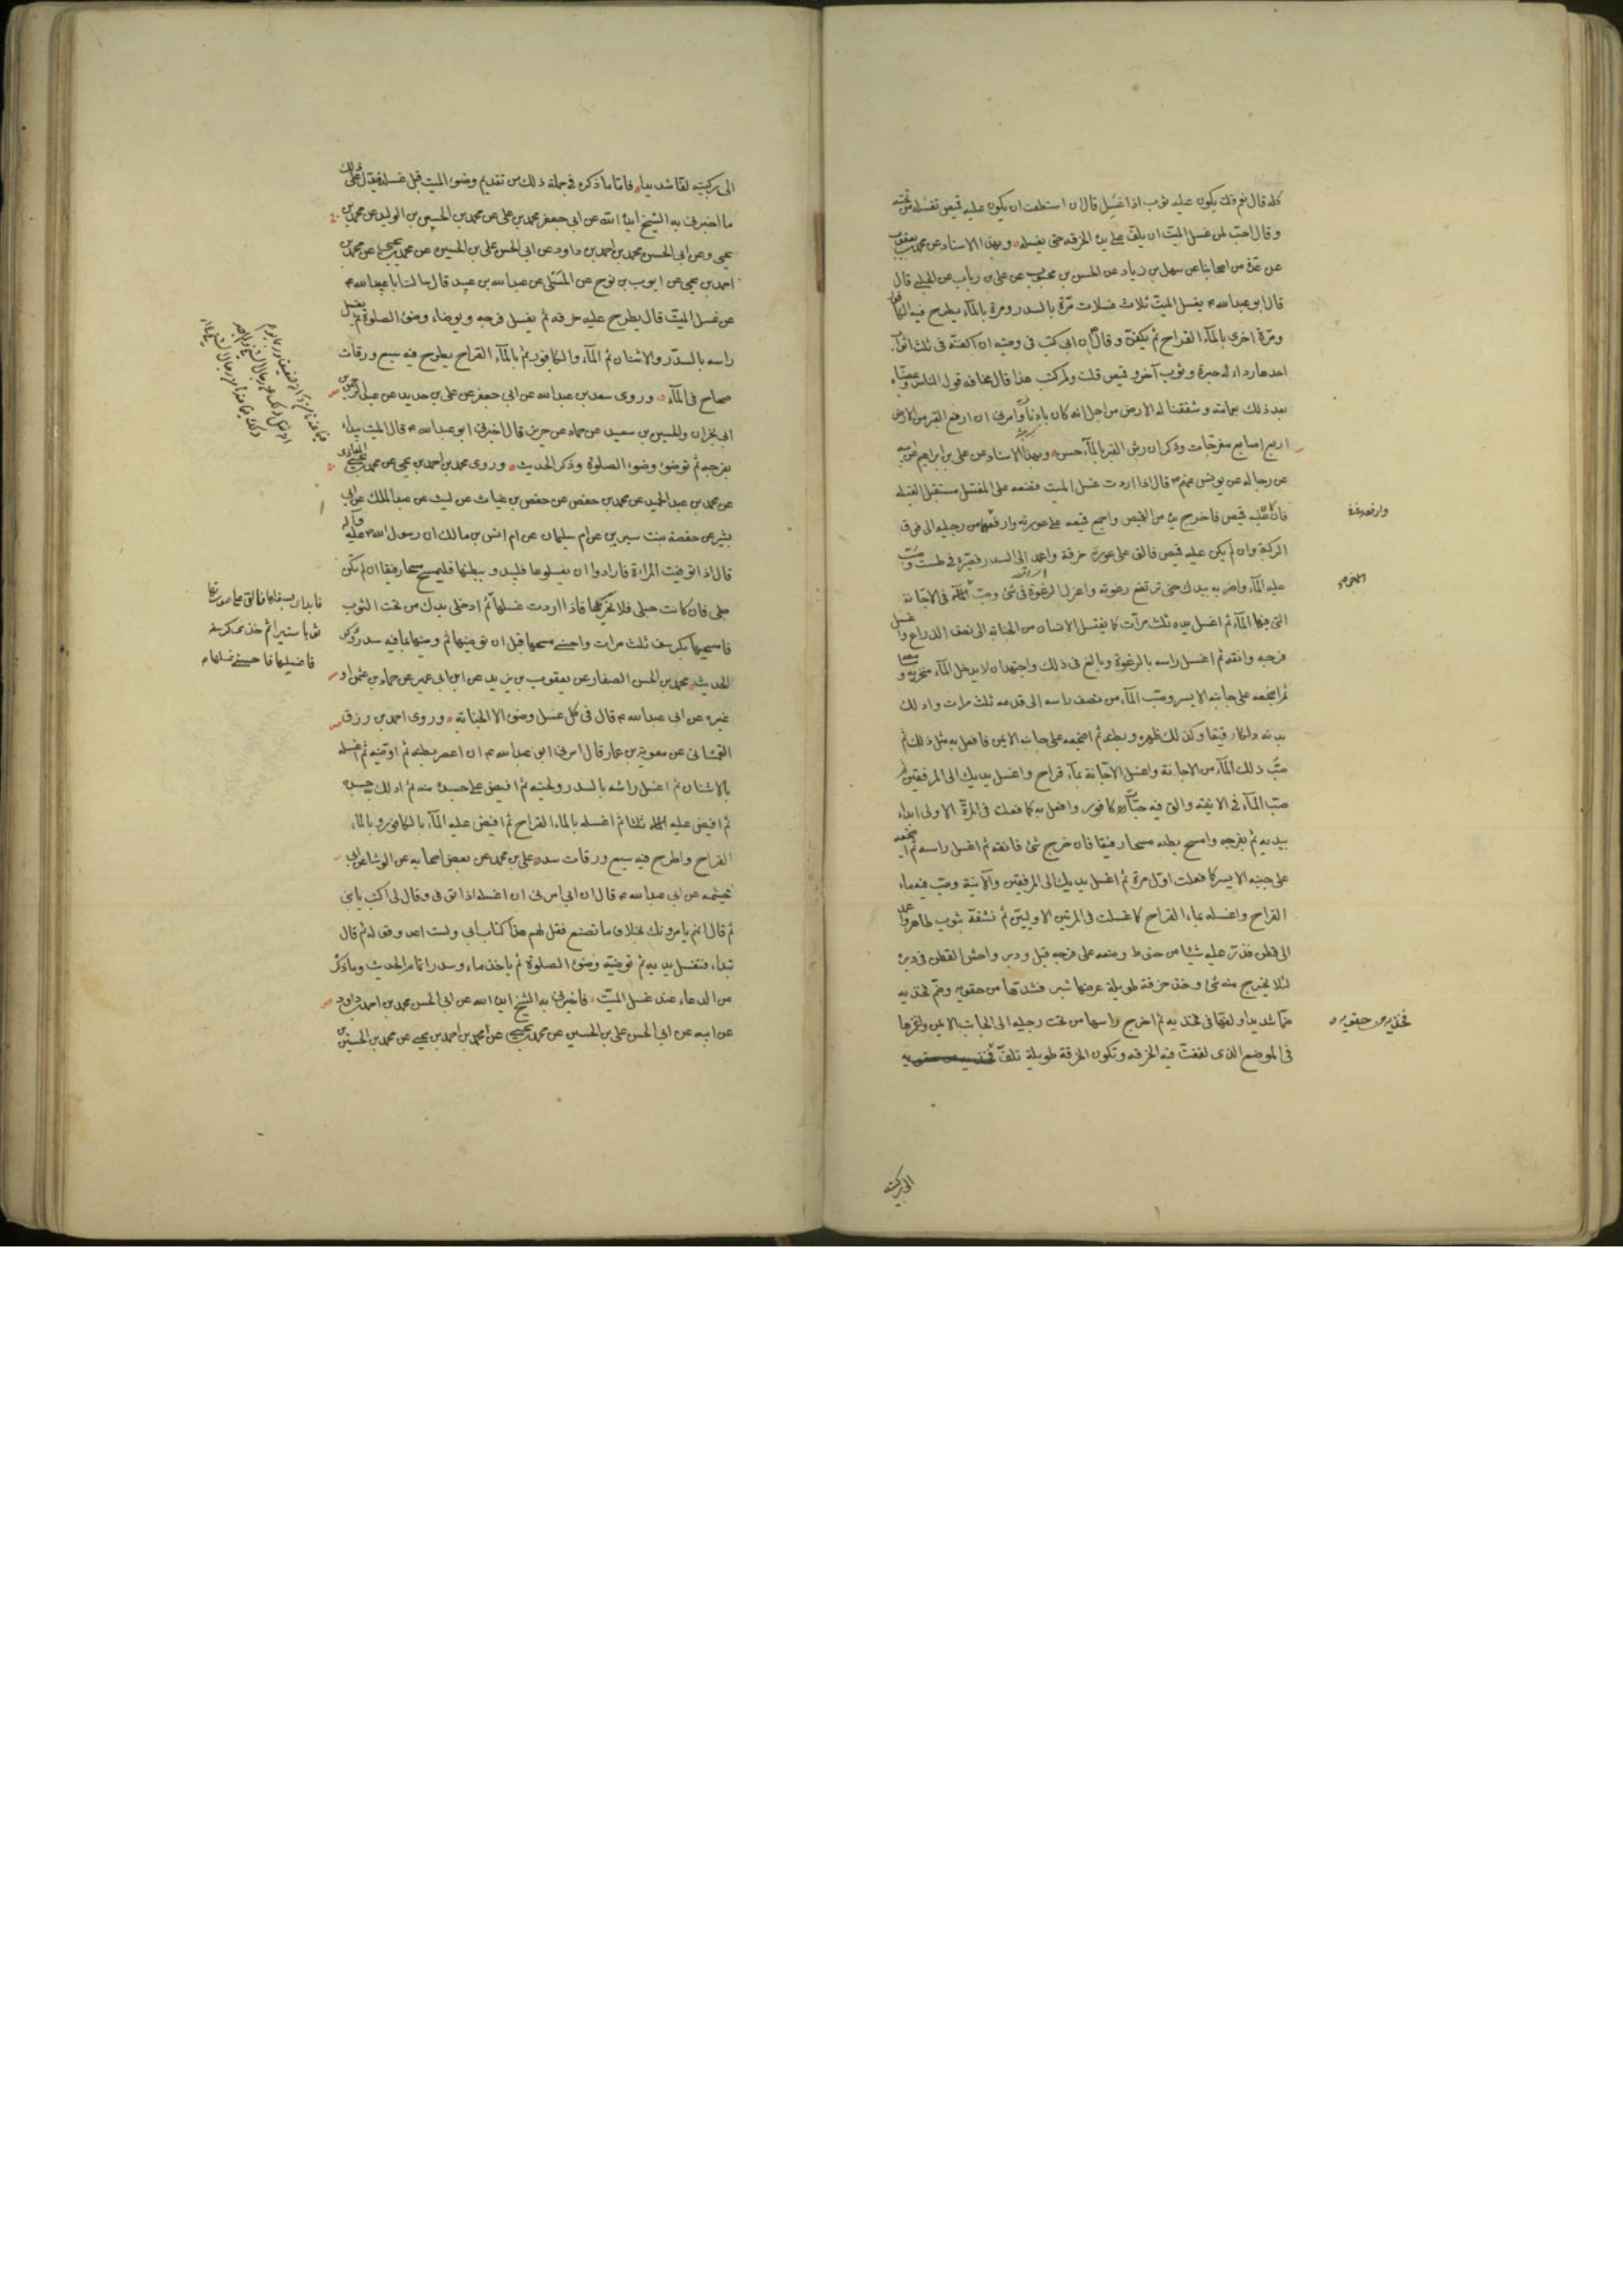 كله قال نعم قلت يكون عليه ثوب اذا غسل قال ان استطعت ان يكون عليه قميص تغسله من تحته
وقال احب لمن غسل الميت ان يلف على يده الخرقة حتى يغسله وبهذا الاسناد عن محمد بن يعقوب
عن عدة من اصحابنا عن سهل بن زياد عن الحسن بن محبوب عن علي بن رباب عن الحلبي قال
قال ابو عبد الله ع يغسل الميت ثلاث غسلات مرة بالسدر ومرة بالمآء يطرح فيه الكافور
ومرة اخرى بالمآء القراح ثم يكفن وقال ان ابي كتب في وصيته ان اكفنه في ثلث اثواب
احدها رداء له حبرة وثوب آخر وقميص قلت ولم كتب هذا قال مخافة قول الناس وعصبناه
بعد ذلك بعمامة وشققنا له الارض من اجل انه كان بادنا وامرني ان ارفع القبر من الارض
اربع اصابع مفرجات وذكر ان رش القبر بالمآء حسن وبهذا الاسناد عن علي بن ابراهيم عن ابيه
عن رجاله عن يونس عنهم ع قال اذا اردت غسل الميت فضعه على المغتسل مستقبل القبلة
فان كان عليه قميص فاخرج يده من القميص واجمع قميصه على عورته وارفعه من رجليه الى فوق
الركبة وان لم يكن عليه قميص فالق على عورته خرقة واعمد الى السدر فصيره في طست وصب
عليه المآء واضربه بيدك حتى ترتفع رغوته واعزل الرغوة في شئ وصب الآخر في الاجانة
التي فيها المآء ثم اغسل يده ثلث مرات كما يغتسل الانسان من الجنابة الى نصف الذراع واغسل
فرجه وانقه ثم اغسل راسه بالرغوة وبالغ في ذلك واجتهد ان لا يدخل المآء منخريه ومسامعه
ثم اضجعه على جانبه الايسر وصب المآء من نصف راسه الى قدمه ثلث مرات وادلك
بدنه دلكا رفيقا وكذلك ظهره وبطنه ثم اضجعه على جانبه الايمن فافعل به مثل ذلك ثم
صب ذلك المآء من الاجانة واغسل الاجانة بمآء قراح واغسل يديك الى المرفقين ثم
صب المآء في الانية والق فيه حبات كافور وافعل به كما فعلت في المرة الاولى ابدأ
بيديه ثم بفرجه وامسح بطنه مسحا رفيقا فان خرج شئ فانقه ثم اغسل راسه ثم اضجعه
على جنبه الايسر كما فعلت اول مرة ثم اغسل يديك الى المرفقين والآنية وصب فيه ماء
القراح واغسله بماء القراح كما غسلت في المرتين الاوليين ثم نشفه بثوب طاهر واعمد
الى قطن فذر عليه شيئا من حنوط وضعه على فرجه قبل ودبر واحش القطن في دبره
لئلا يخرج منه شئ وخذ خرقة طويلة عرضها شبر فشدها من حقويه وضم فخذيه
ضما شديدا ولفها في فخذيه ثم اخرج راسها من تحت رجليه الى الجانب الايمن واغرزها
في الموضع الذي لففت فيه الخرقه وتكون الخرقة طويلة تلف
فخذيه من حقويه
الى ركبتيه
الى ركبتيه لفا شديدا فاما ما ذكره في جملة ذلك من تقديم وضوء الميت قبل غسله فيدل على ذلك
ما اخبرني به الشيخ ايده الله عن ابي جعفر محمد بن علي عن محمد بن الحسن بن الوليد عن محمد بن
يحيى وعن ابي الحسن محمد بن احمد بن داود عن ابي الحسن علي بن الحسين عن محمد بن يحيى عن محمد بن
احمد بن يحيى عن ايوب بن نوح عن المسلي عن عبد الله بن عبيد قال سالت ابا عبد الله ع
عن غسل الميت قال يطرح عليه خرقة ثم يغسل فرجه ويوضأ وضوء الصلوة ثم يغسل
راسه بالسدر والاشنان ثم المآء والكافور ثم بالمآء القراح يطرح فيه سبع ورقات
صحاح في المآء وروى سعد بن عبد الله عن ابي جعفر عن علي بن حديد عن عبد الرحمن بن
ابي نجران والحسين بن سعيد عن حماد عن حريز قال اخبرني ابو عبد الله ع قال الميت يبداء
بفرجه ثم توضئ وضوء الصلوة وذكر الحديث وروى محمد بن احمد بن يحيى عن محمد بن يحيى المعاذي
عن محمد بن عبد الحميد عن محمد بن حفص عن حفص بن غياث عن ليث عن عبد الملك عن ابي
بشير عن حفصة بنت سيرين عن ام سليمان عن ام انس بن مالك ان رسول الله صلى الله عليه وآله
قال اذا توفيت المراءة فارادوا ان يغسلوها فليبدو ببطنها فليمسح مسحا رفيقا ان لم تكن
حبلى فان كانت حبلى فلا تحركها فاذا اردت غسلها ثم ادخلي يدك من تحت الثوب
فامسحيها بكرسف ثلث مرات واحسني مسحها قبل ان توضيها ثم وضيها بماء فيه سدر وذكر
الحديث محمد بن الحسن الصفار عن يعقوب بن يزيد عن ابن ابي عمير عن حماد بن عثمان او
غيره عن ابي عبد الله ع قال في كل غسل وضوء الا الجنابة وروى احمد بن رزق
الغمشاني عن معوية بن عمار قال امرني ابو عبد الله ع ان اعصر بطنه ثم اوضيه ثم اغسله
بالاشنان ثم اغسل راسه بالسدر ولحيته ثم افيض على جسده منه ثم ادلك به جسده
ثم افيض عليه ثلثا ثم اغسله بالماء القراح ثم افيض عليه المآء بالكافور وبالماء
القراح واطرح فيه سبع ورقات سدر علي بن محمد عن بعض اصحابه عن الوشا عن ابي
خيثمه عن ابي عبد الله ع قال ان ابي امرني ان اغسله اذا توفي وقال لي اكتب يا بني
ثم قال انهم يامرونك بخلاف ما تصنع فقل لهم هذا كتاب ابي ولست اعدو قوله ثم قال
تبداء فتغسل يديه ثم توضيه وضوء الصلوة ثم ياخذ ماء وسدرا تمام الحديث وما ذكر
من الدعاء عند غسل الميت فاخبرني به الشيخ ايده الله عن ابي الحسن محمد بن احمد بن داود
عن ابيه عن ابي الحسن علي بن الحسين عن محمد بن يحيى عن محمد بن احمد بن يحيى عن محمد بن الحسين
فابدأي بسفليها فالق على عورتها
ثوبا ستيرا ثم خذي كرسفة
فاغسليها فاحسني غسلها م
فخذيه من حقويه